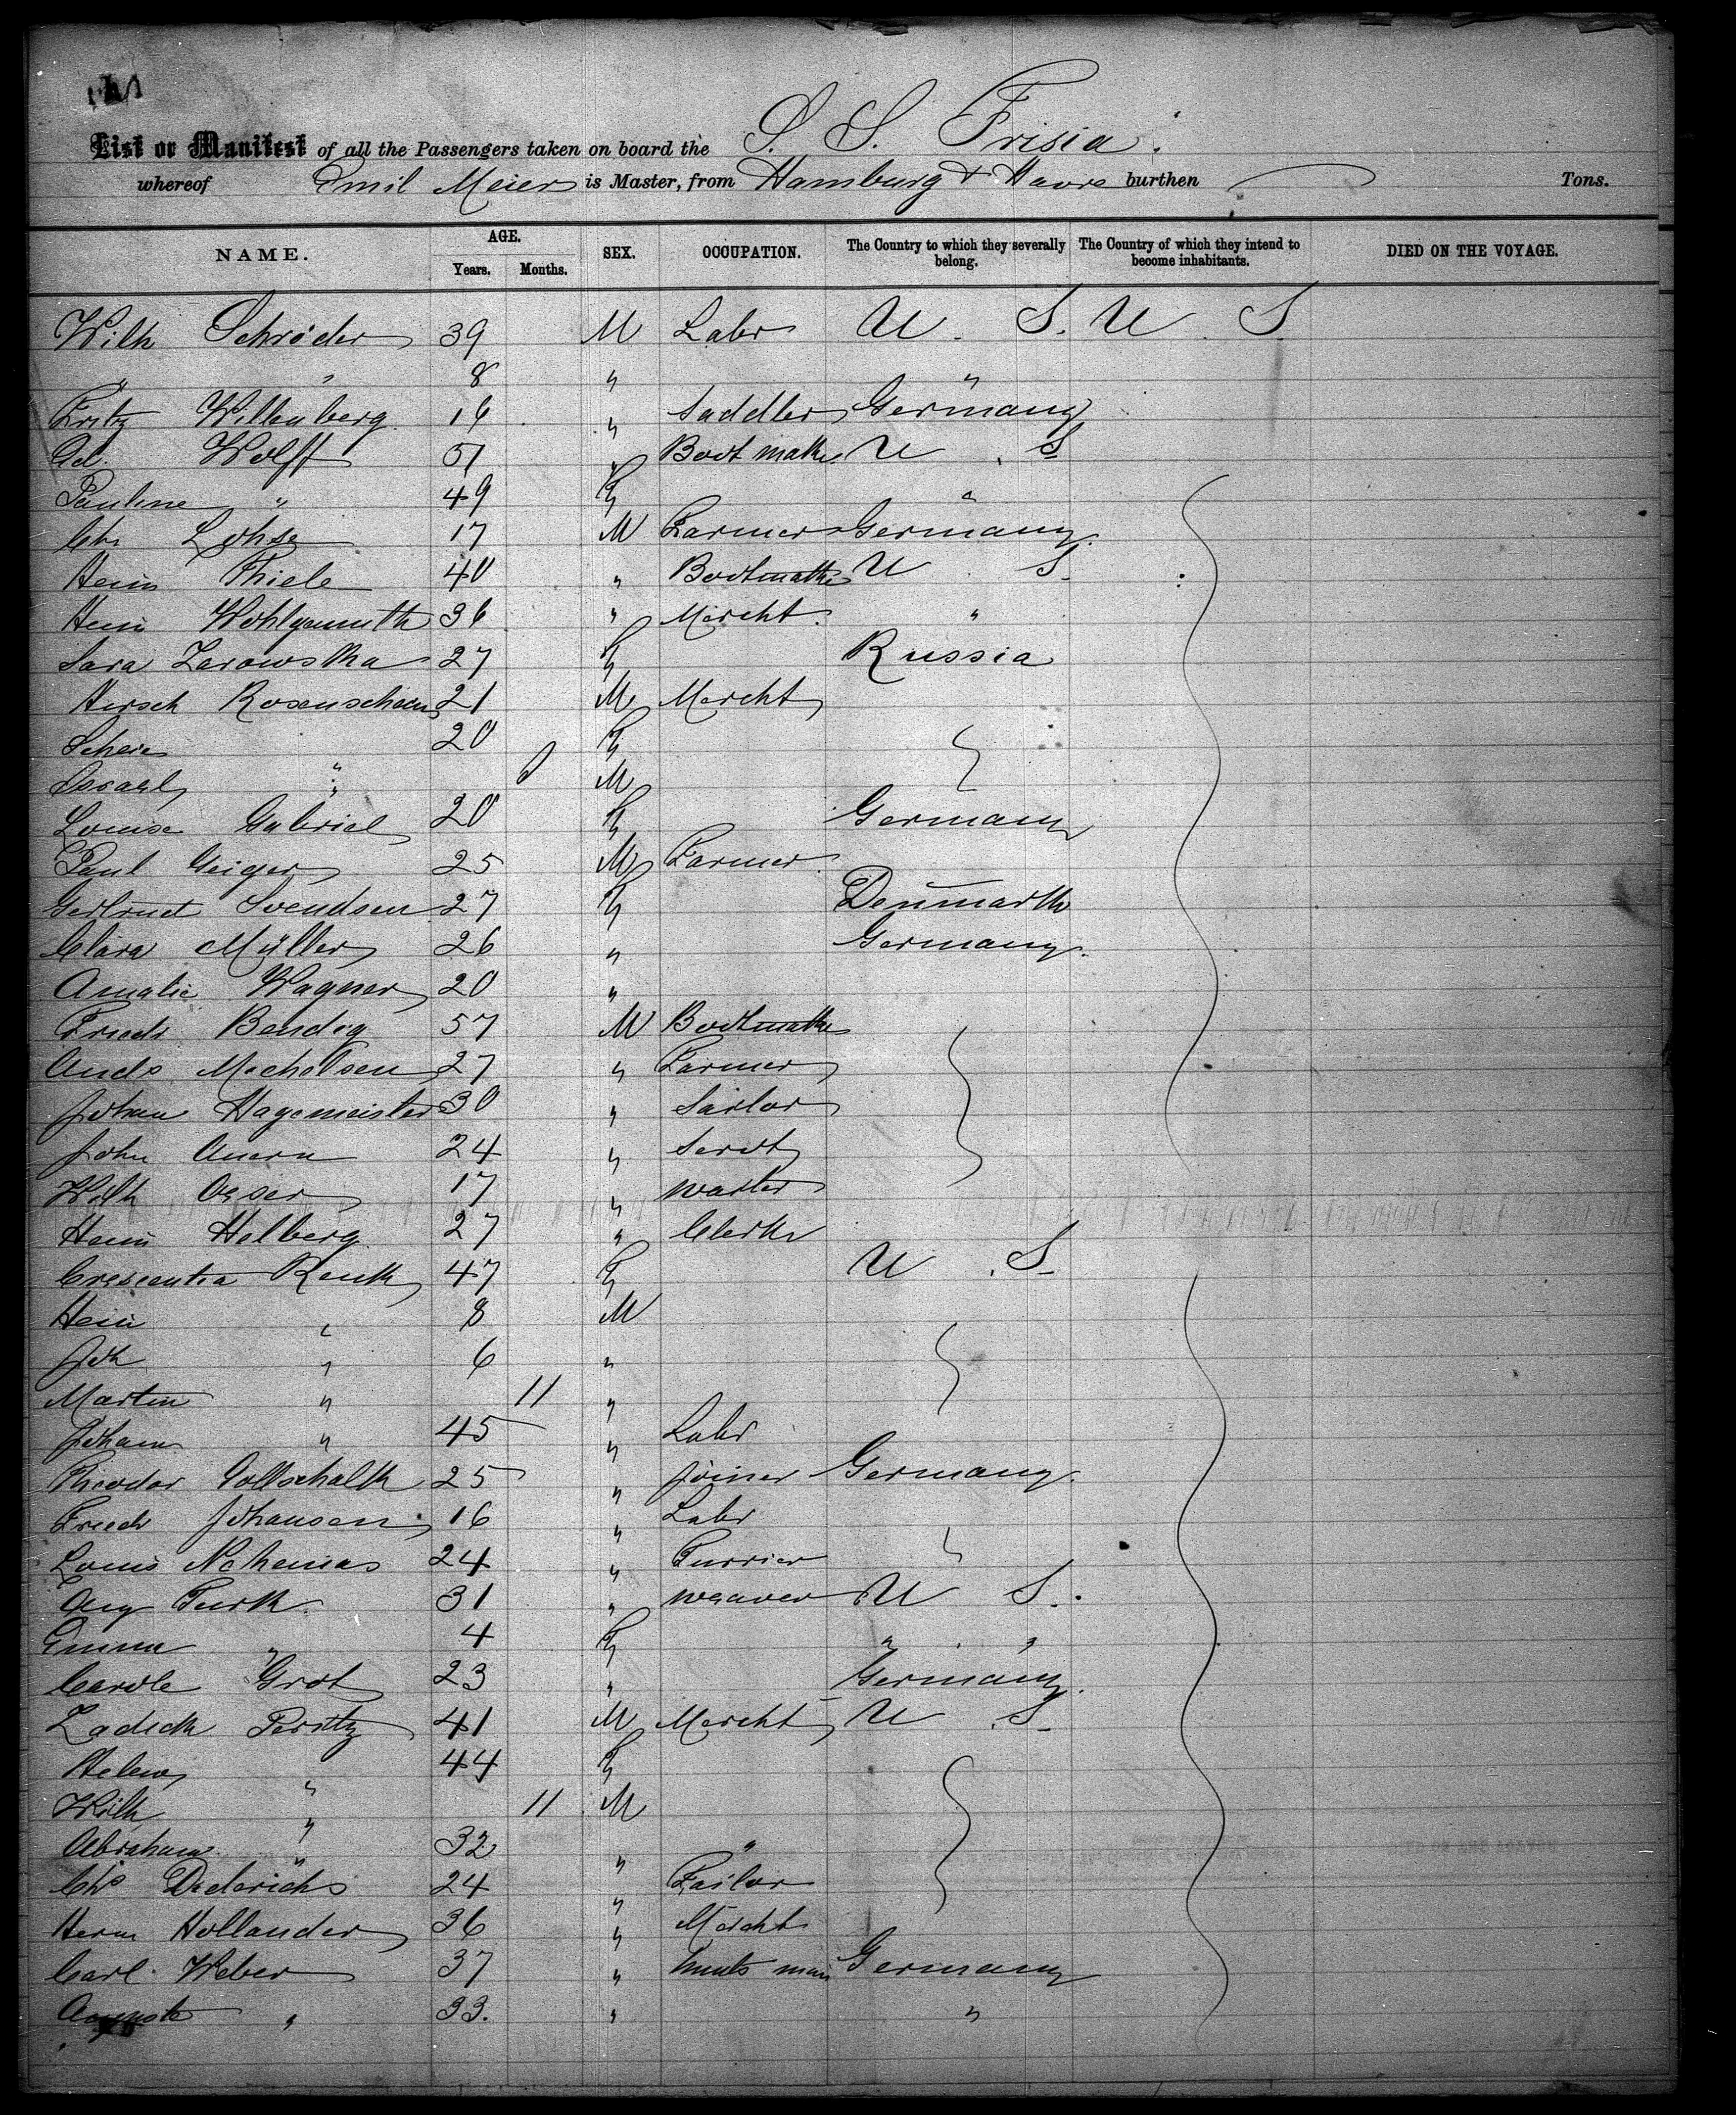 List or Manifest of all the Passengers taken on board the S. S. Frisia.
whereof Emil Meier is Master, from Hamburg & Havre burthen Tons.
NAME. AGE. Years. Months. SEX. OCCUPATION. The Country to which they severally belong. The Country of which they intend to become inhabitants. DIED ON THE VOYAGE.
Wilh Schröder 39 M Labr U. S. U. S.
" " 8 " "
Fritz Willenberg 16 " Saddler Germany
Ad. Wolff 51 " Bootmakr U. S.
Pauline " 49 F "
Chr Lohse 17 M Farmer Germany
Heinr Thiele 40 " Bootmakr U S.
Heinr Wohlgemuth 36 " Mercht "
Sara Zarowska 27 F Russia
Hersch Rosenschein 21 M Mercht
Scheie " 20 F
Israel " M
Louise Gabriel 20 F Germany
Paul Geiger 25 M Farmer
Gertrud Svendsen 27 F Denmark
Clara Müller 26 " Germany
Amalie Wagner 20 "
Friedr Bendig 57 M Bootmakr
Ands Michelsen 27 " Farmer
Johan Hagemeister 30 " Sailor
John Quern 24 " Servt
Wilh Oeser 17 " waiter
Heinr Helberg 27 " Clerk
Crescentia Renk 47 F U. S.
Heinr " 8 M
Joh " 6 "
Martin " 11 "
Johann " 45 " Labr
Theodor Gottschalk 25 " Joiner Germany
Friedr Johansen 16 " Labr
Louis Nehemias 24 " Furrier
Aug Turk 31 " weaver U S.
Emma " 4 F " "
Carole Grot 23 " Germany
Zadick Peritz 41 M Mercht U. S.
Helene " 44 F
Wilh " 11 M
Abraham " 32 " "
Chs Diederichs 24 " Tailor
Herm Hollander 36 " Mercht
Carl Weber 37 " hunts man Germany
Auguste " 33. " "